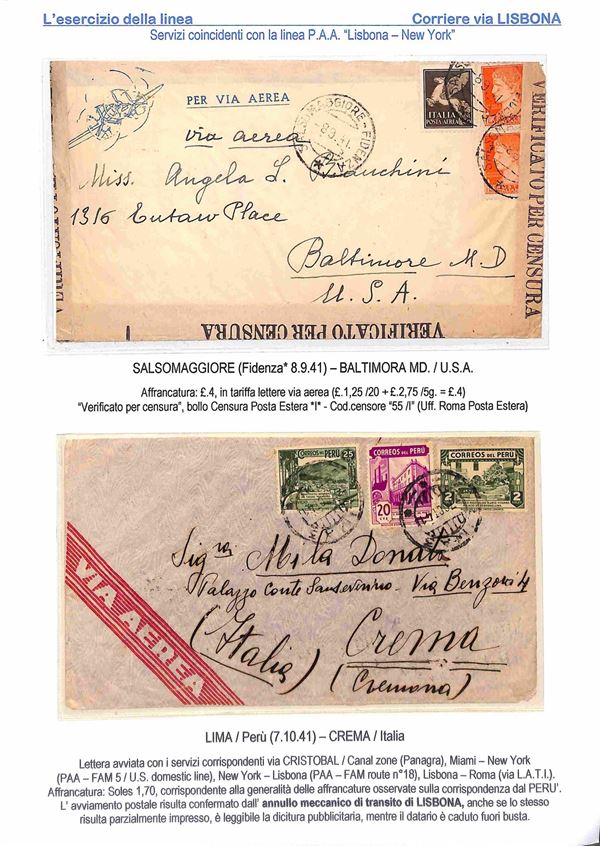 L'esercizio della linea Corriere via LISBONA
Servizi coincidenti con la linea P.A.A. "Lisbona – New York"
PER VIA AEREA
via aerea
SALSOMAGGIORE - FIDENZA
ITALIA
POSTA AEREA
Miss. Angela L.
1316 Eutaw Place
Baltimore M.D
U.S.A.
VERIFICATO PER CENSURA
VERIFICATO PER CENSURA
SALSOMAGGIORE (Fidenza* 8.9.41) – BALTIMORA MD. / U.S.A.
Affrancatura: £.4, in tariffa lettere via aerea (£.1,25 /20 + £.2,75 /5g. = £.4)
"Verificato per censura", bollo Censura Posta Estera "I" - Cod.censore "55 /I" (Uff. Roma Posta Estera)
CORREOS DEL PERÚ 25
CORREOS DEL PERÚ
20
CORREOS DEL PERÚ
2 2
Sig.ra Mila Donati
Palazzo Conte Sanseverino - Via Benzoni 4
(Italia) Crema
(Cremona)
VIA AEREA
LIMA / Perù (7.10.41) – CREMA / Italia
Lettera avviata con i servizi corrispondenti via CRISTOBAL / Canal zone (Panagra), Miami – New York
(PAA – FAM 5 / U.S. domestic line), New York – Lisbona (PAA – FAM route n°18), Lisbona – Roma (via L.A.T.I.).
Affrancatura: Soles 1,70, corrispondente alla generalità delle affrancature osservate sulla corrispondenza dal PERU'.
L' avviamento postale risulta confermato dall' annullo meccanico di transito di LISBONA, anche se lo stesso
risulta parzialmente impresso, è leggibile la dicitura pubblicitaria, mentre il datario è caduto fuori busta.